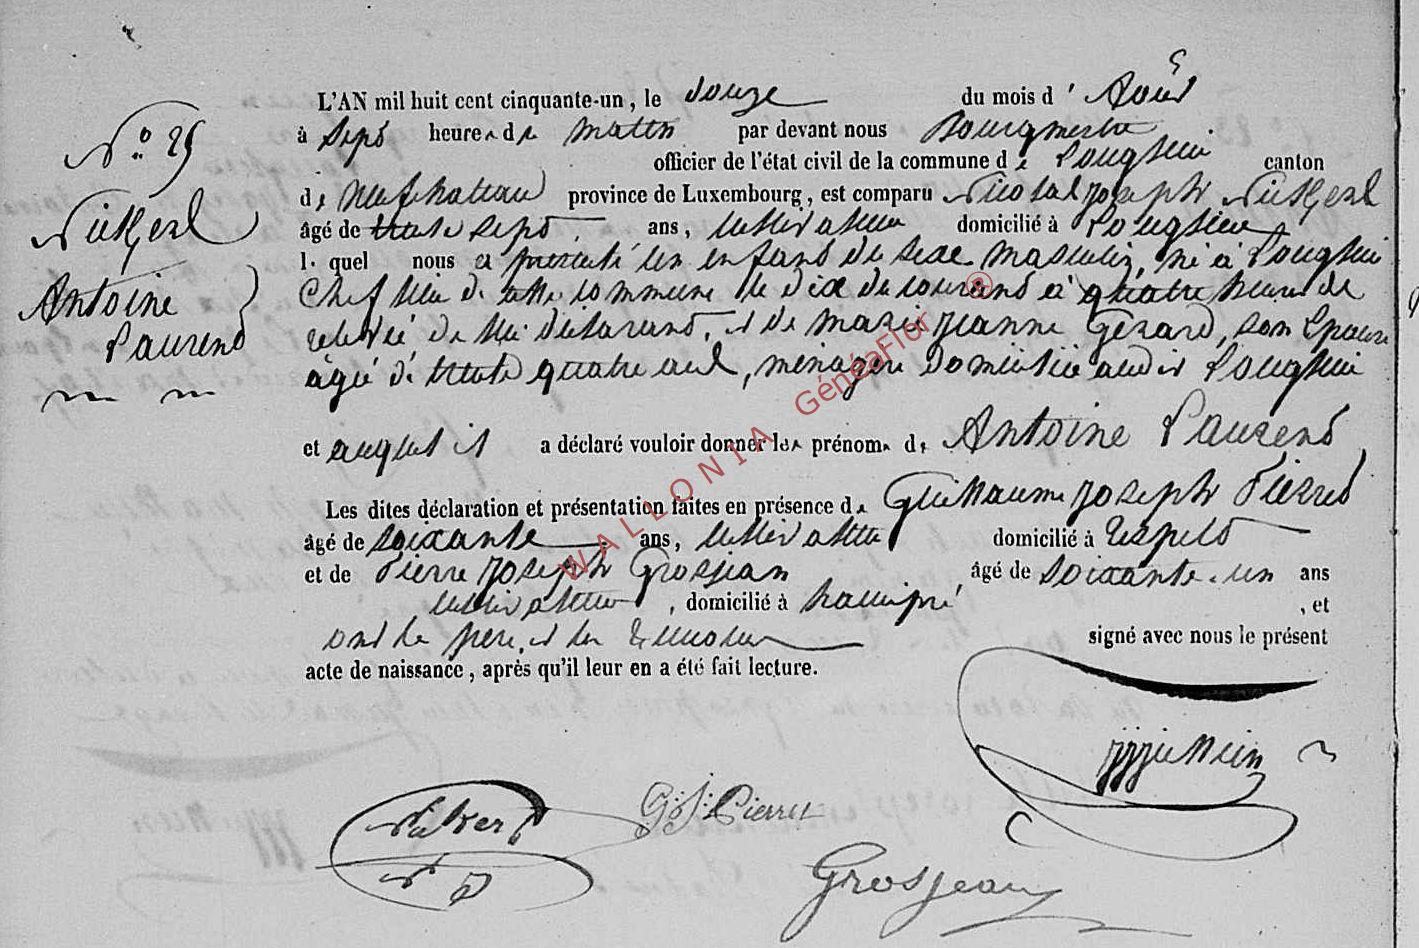 N° 25
Nickers
Antoine
Laurent
L'AN mil huit cent cinquante-un, le douze du mois d' Août
à sept heures du matin par devant nous Bourgmestre
officier de l'état civil de la commune de Longlier canton
de Neufchateau province de Luxembourg, est comparu Nicolas Joseph
âgé de trente sept ans, cultivateur domicilié à Longlier
lequel nous a présenté un enfant du sexe masculin, né à Longlier
Chef lieu de cette commune le dix du courant à quatre heures de
relevée de lui déclarant, et de Marie Jeanne Gérard, son Epouse
âgée de trente quatre ans, ménagère domiciliée audit Longlier
et auquel il a déclaré vouloir donner les prénoms de Antoine Laurent
Les dites déclaration et présentation faites en présence de Guillaume Joseph Pierret
âgé de soixante ans, cultivateur domicilié à Respelt
et de Pierre Joseph Grosjean âgé de soixante-un ans
cultivateur, domicilié à hamipré, et
ont le père et les témoins signé avec nous le présent
acte de naissance, après qu'il leur en a été fait lecture.
G: J: Pierret
Grosjean
WALLONIA GénéaFlor ®